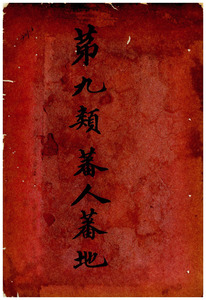 第九類蕃人蕃地